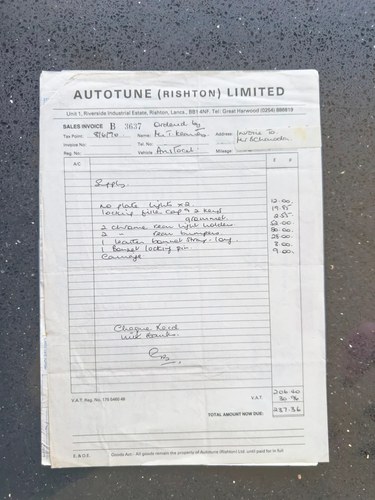 AUTOTUNE (RISHTON) LIMITED
Unit 1, Riverside Industrial Estate, Rishton, Lancs., BB1 4NF. Tel: Great Harwood (0254) 889819
SALES INVOICE B 3637 Ordered by
Tax Point: 8/6/90 Name: Mr T. Address: Invoice To
Invoice No: Tel. No.: Mr
Reg. No.: Vehicle Mileage
A/C £ £
Supply
No plate lights x 2 12.00
locking filler cap & 2 keys 19.95
grommet 2.55
2 chrome rear light holders
2 " rear bumpers
1 leather bonnet strap. long
1 Bonnet locking pin 8.00
Carriage 9.00
Cheque Recd
with thanks
V.A.T. Reg. No. V.A.T.
206.40
30.96
TOTAL AMOUNT NOW DUE: 237.36
E. & O.E. Goods Acc: All goods remain the property of Autotune (Rishton) Ltd. until paid for in full